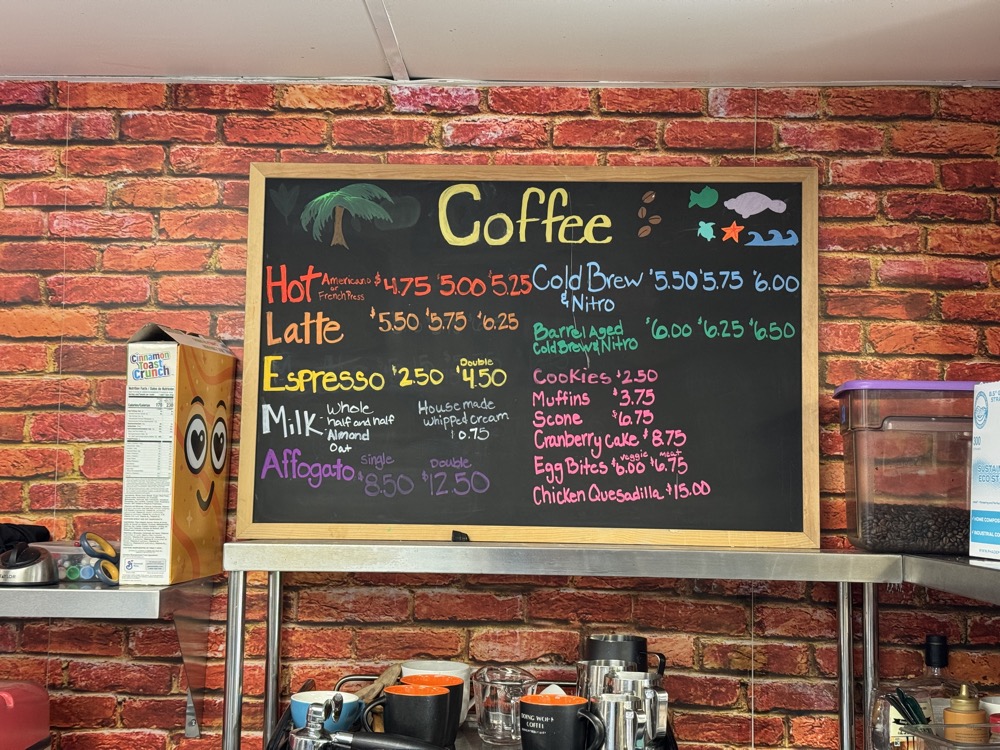 Coffee
Hot Americano or French Press $4.75 $5.00 $5.25
Latte $5.50 $5.75 $6.25
Espresso $2.50 Double $4.50
Milk: Whole
half and half
Almond
Oat
House made
whipped cream
$0.75
Affogato Single $8.50 Double $12.50
Cold Brew & Nitro $5.50 $5.75 $6.00
Barrel Aged
Cold Brew & Nitro $6.00 $6.25 $6.50
Cookies $2.50
Muffins $3.75
Scone $6.75
Cranberry Cake $8.75
Egg Bites veggie $6.00 meat $6.75
Chicken Quesadilla $15.00
Cinnamon
Toast
Crunch
Nutrition Facts
DOING WORK
COFFEE
300